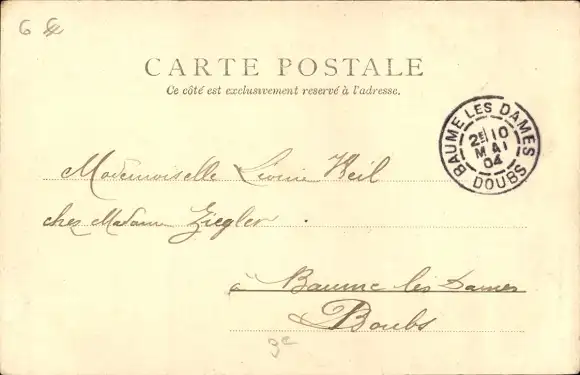 CARTE POSTALE
Ce côté est exclusivement reservé à l'adresse.
BAUME LES DAMES
2E 10
MAI
04
DOUBS
Mademoiselle Léonie Weil
chez Madame Ziegler.
à Baume les Dames
Doubs